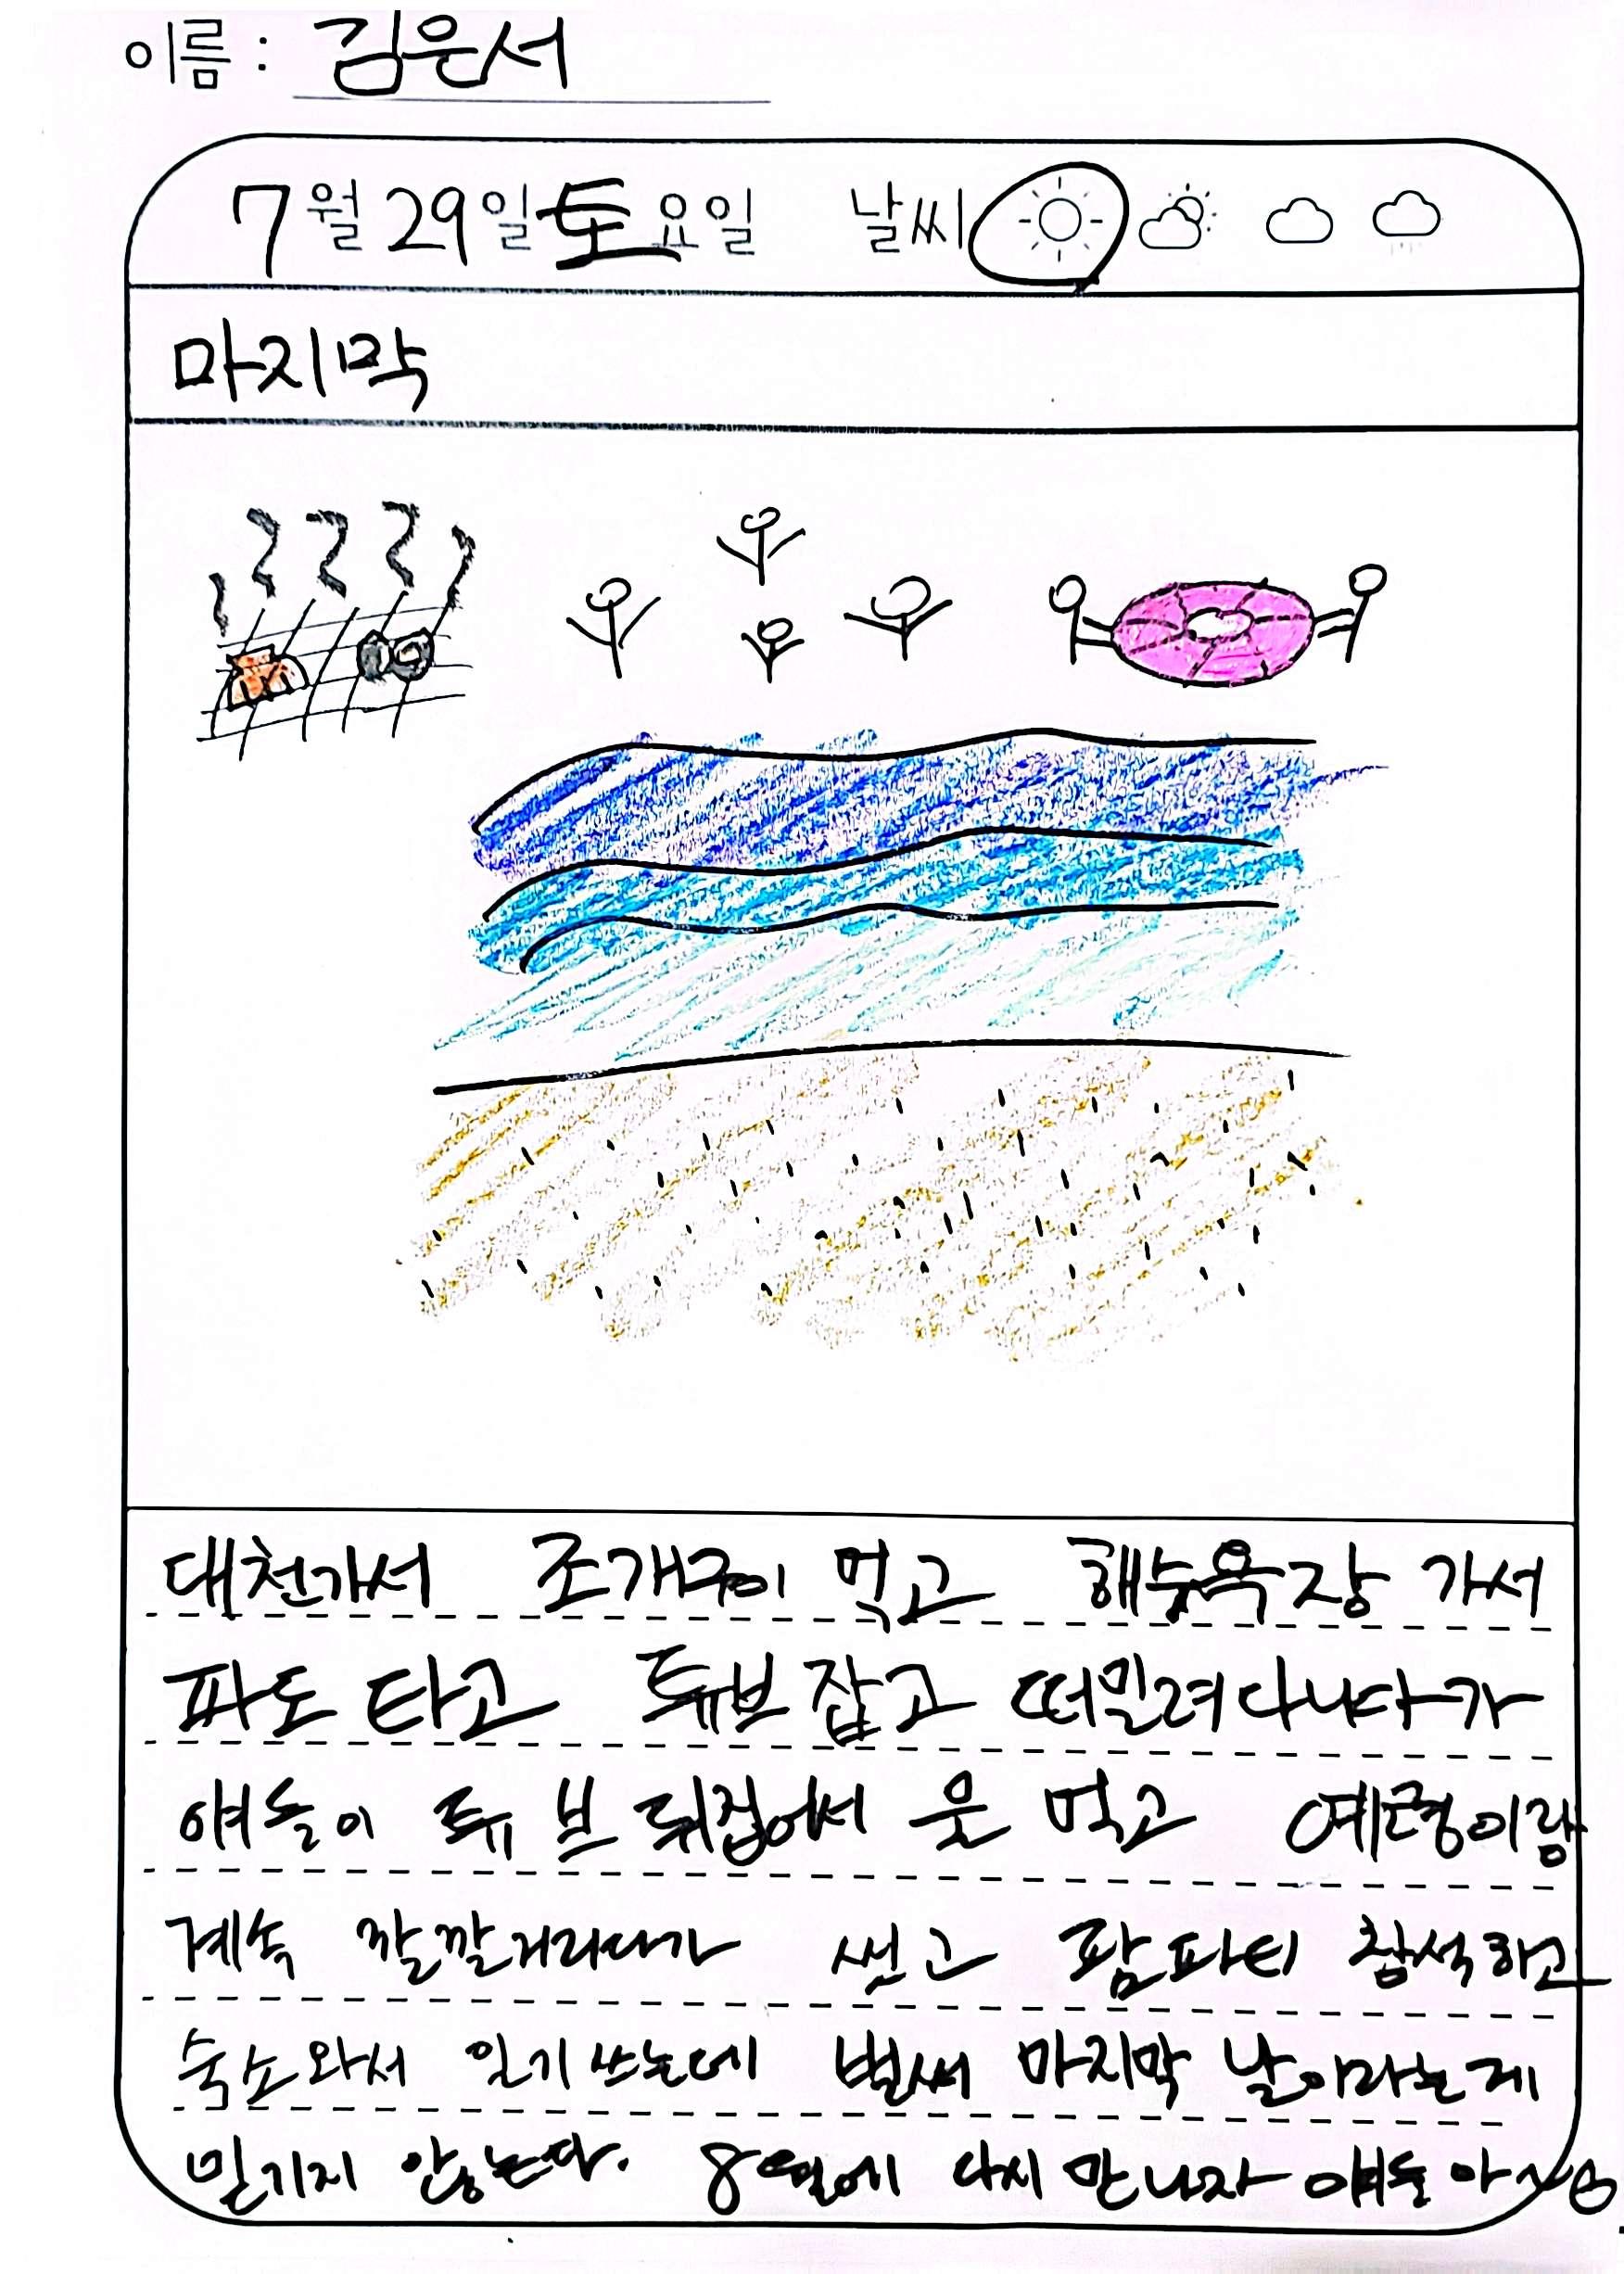 이름: 김은서
7월 29일 토요일 날씨
마지막
대천가서 조개구이 먹고 해수욕장 가서
파도 타고 튜브 잡고 떠밀려다니다가
얘들이 튜브 뒤집어서 물 먹고 예령이랑
계속 깔깔거리다가 씻고 팜파티 참석하고
숙소와서 일기쓰는데 벌써 마지막 날이라는게
믿기지 않는다. 8월에 다시 만나자 얘들아~